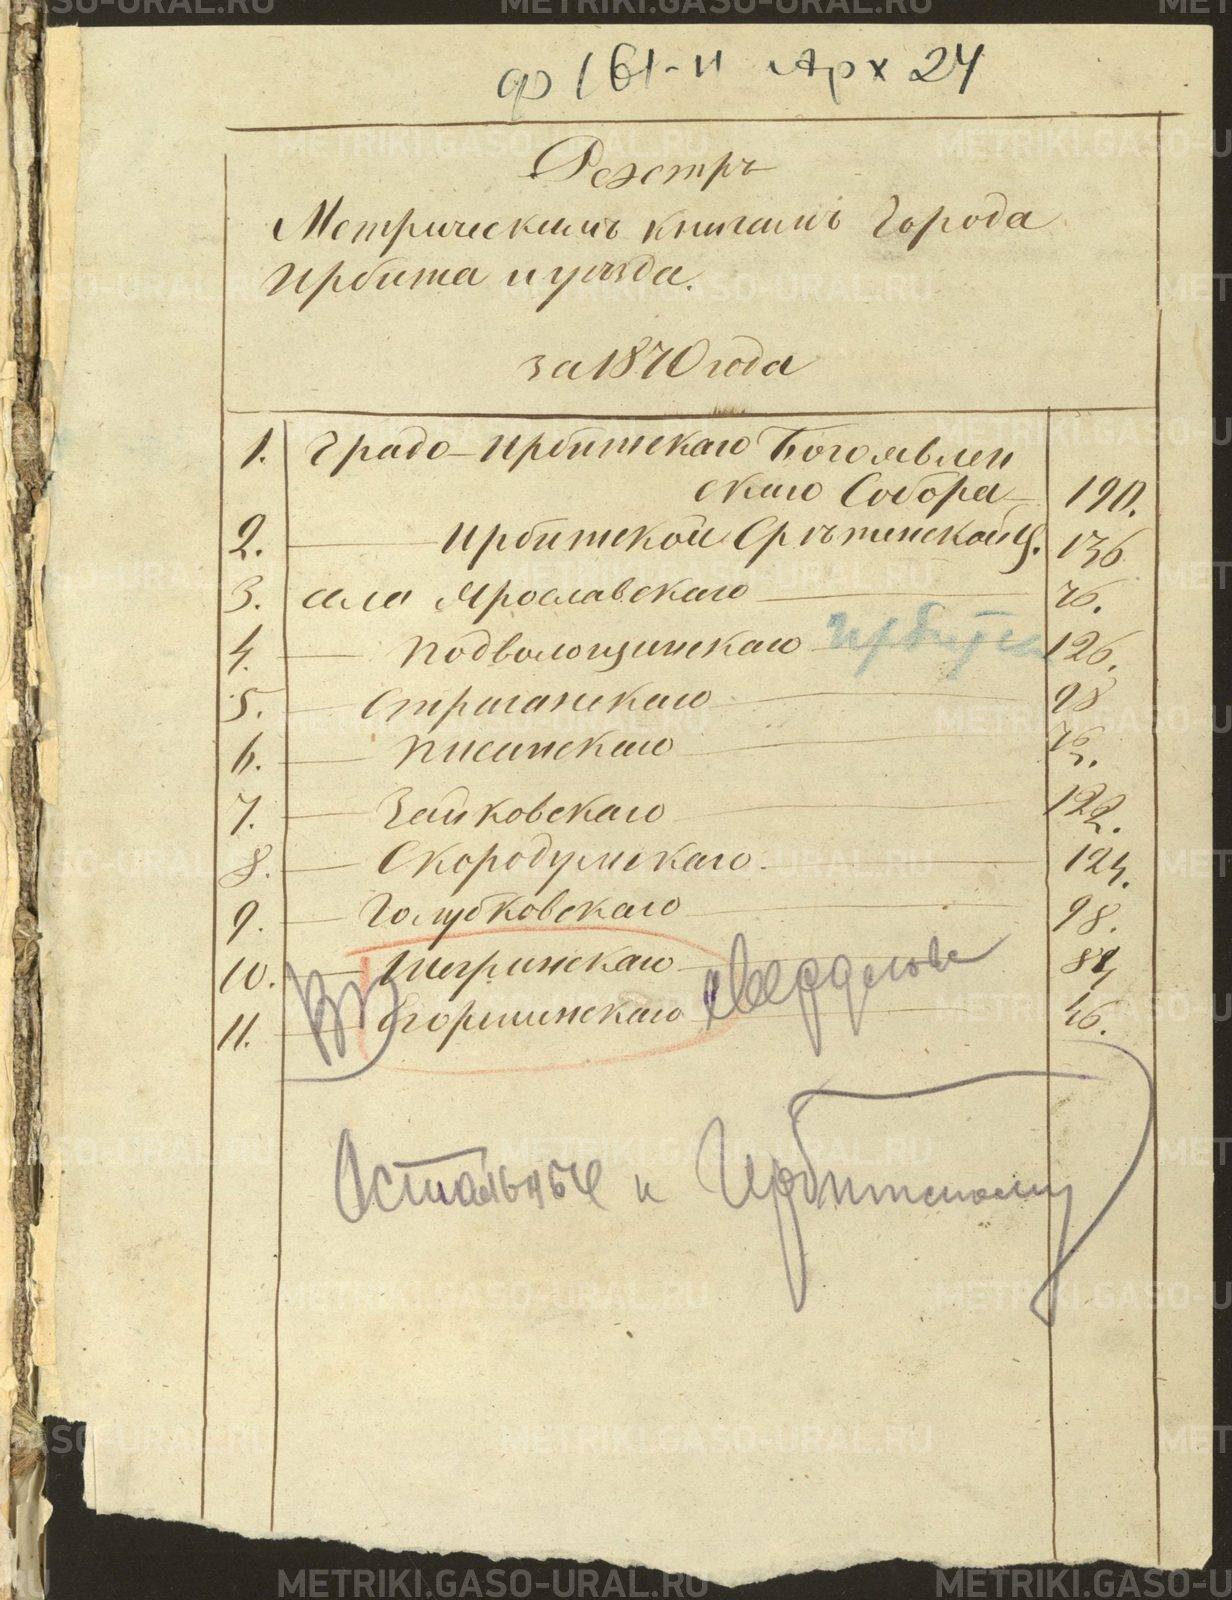 ф 161-и Арх 24
Реэстръ
Метрическимъ книгамъ Города
Ирбита и уѣзда.
за 1870 года
1. Градо-Ирбитскаго Богоявлен
скаго Собора 190.
2. Ирбитской Срѣтенской Ц. 136
3. села Ярославскаго 76.
4. Подволошинскаго Ирбитск 126.
5. Стриганскаго 98
6. Писанскаго
7. Зайковскаго 122.
8. Скородумскаго. 124.
9. Голубковскаго 98.
10. Шогринскаго
11. Егоршинскаго 46.
Остальные к Ирбитскому
METRIKI.GASO-URAL.RU